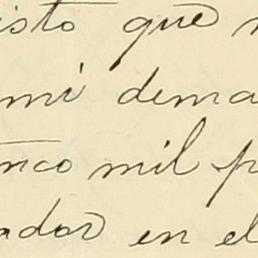 isto que
mi dema
nco mil p
ador en el